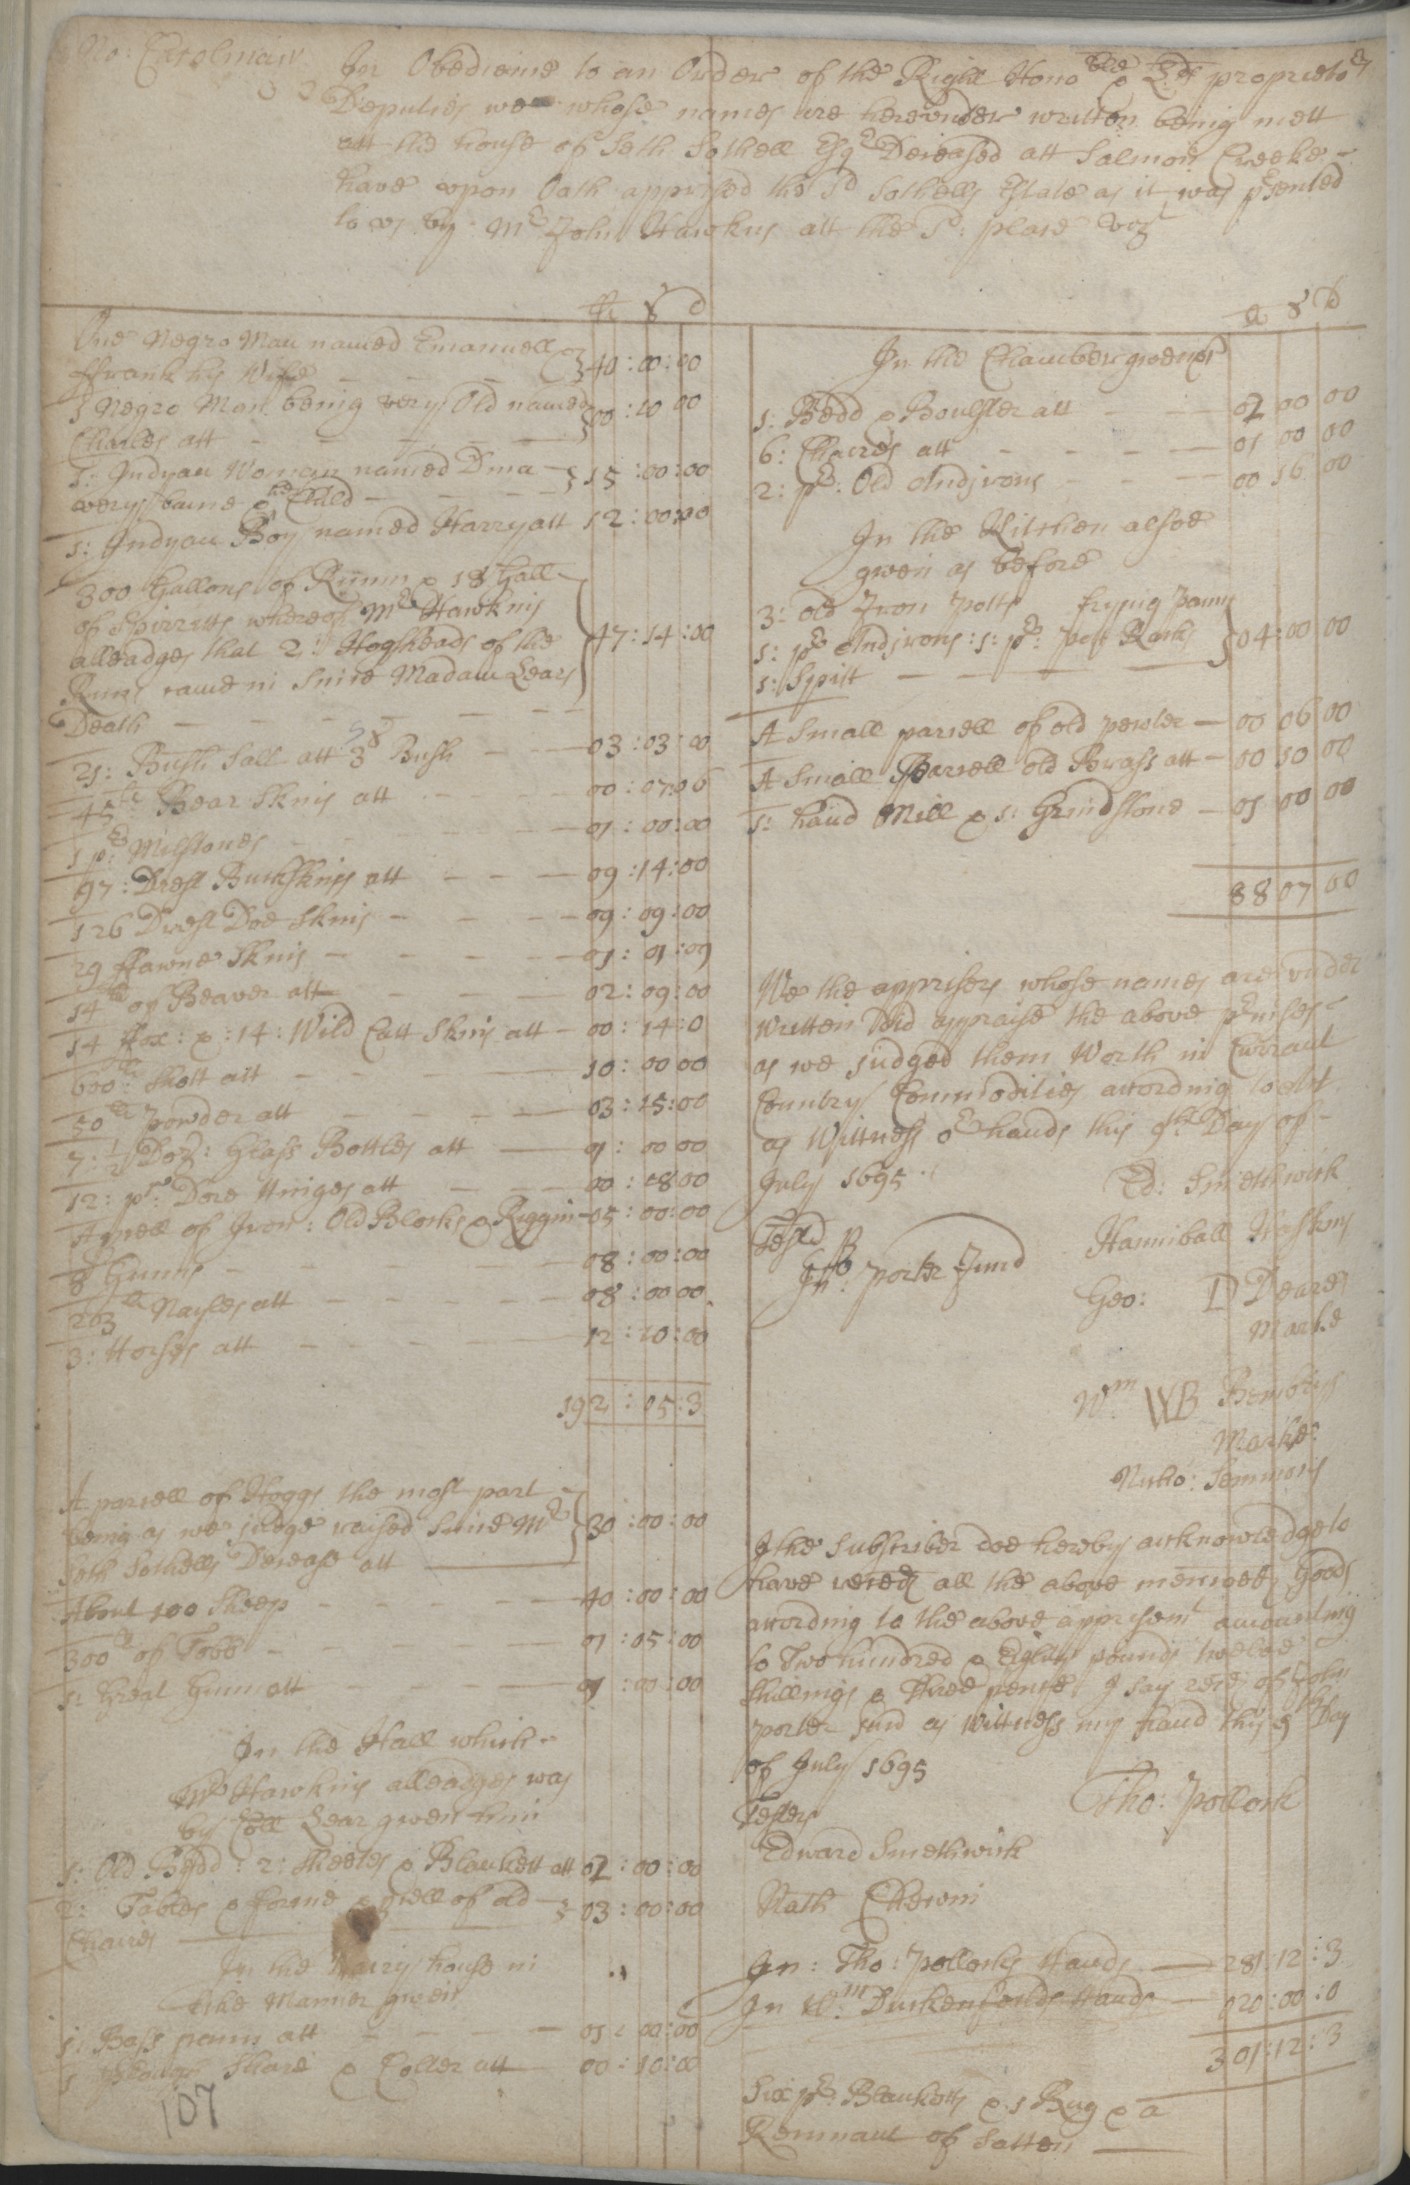 No: Carolina
In Obedience to an Order of the Right Honoble & Lds proprietors
Deputies wee whose names are hereunder written being mett
att the house of Seth Sothell Esqr Deceased att Salmon Creeke
have upon Oath apprised the sd Sothells Estate as it was psented
to us by Mr John Hawkins att the sd: place viz
£ s d
One Negro Man named Emanuell &
ffrank his Wife — 40:00:00
1 Negro Man being very Old named
Charles att — 00:10 00
1: Indyan Woman named Dina
very lame & Child — 15:00:00
1: Indyan Boy named Harry att 12:00:00
300 Gallons of Rumm & 18 Gall
of Spirritts whereof Mr Hawkins
alleadges that 2 Hogheads of the
Rum came in Since Madam Lears
Death — 47:14:00
21: Bush Salt att 3s Bush — 03:03:00
45 Bear Skins att — 00:07:06
1 pr Milstones — 01:00:00
97: Drest Buckskins att — 09:14:00
126 Drest Doe Skins — 09:09:00
29 ffawne Skins — 01:01:09
14 of Beaver att — 02:09:00
14 ffox: & :14: Wild Catt Skins att — 00:14:0
600 Shott att — 10:00 00
50 Powder att — 03:15:00
7:½ Doz: Glass Bottles att — 01:00 00
12: pr: Dore Hinges att — 00:08 00
A prcell of Iron: Old Blocks & Riggin — 05:00:00
8 Gunns — 08:00:00
203 Nayles att — 08:00 00
3: Horses att — 12:10:00
192:05:3
A parcell of Hoggs the most part
being as we judge raised Since Mr
Seth Sothells Decease att — 30:00:00
About 100 Sheep — 40:00:00
300 of Tobb — 01:05:00
1: Great Gunn att — 01:00:00
In the Hall which
Mr Hawkins alleadges was
by Coll Lear given him
1: Old Bedd: 2: Sheetes & Blankett att 02:00:00
2: Tables & forme & prcell of old
Chaires — 03:00:00
In the Dairy house in
like Manner given
1: Bass pann att — 01:00:00
1 Plough Share & Colter att — 00:10:00
107
£ s d
In the Chamber given
1: Bedd & Boulster att — 02 00 00
6: Chaires att — 01 00 00
2: pr: Old Andjrons — 00 16 00
In the Kitchen alsoe
given as before
3: old Iron Potts frying Pann
1: pr Andjrons: 1: pr: Pott Racks
1: Spitt — 04:00 00
A Small parcell of old pewter — 00 06 00
A Small Parcell old Brass att — 00 10 00
1: hand Mill & 1: Grindstone — 01 00 00
88 07 00
We the apprisers whose names are under
written Did appraise the above pmises
as we judged them Worth in Currant
Country Commodities according to Act
as Wittness or hands this 9th Day of
July 1695
Ed: Smethwick
Test
Jno: Porter Junr
Hanniball Haskins
Geo: D Deares
Marke
Wm WB Bentleys
Marke
Nicho: Semmons
I the Subscriber doe hereby acknowledge to
have recd all the above mencioned Goods
according to the above apprisemt amounting
to Two hundred & Eighty pounds twelve
shillings & three pence. I say recd of John
porter Junr as Wittness my hand this 9th Day
of July 1695
Tho: Pollock
Testes
Edward Smethwick
Nath Chevin
In: Tho: Pollocks Hands — 281:12:3
In Wm: Duckenfeilds Hands — 020:00:0
301:12:3
Six pr: Blanketts & 1 Rug & a
Remnant of Satten